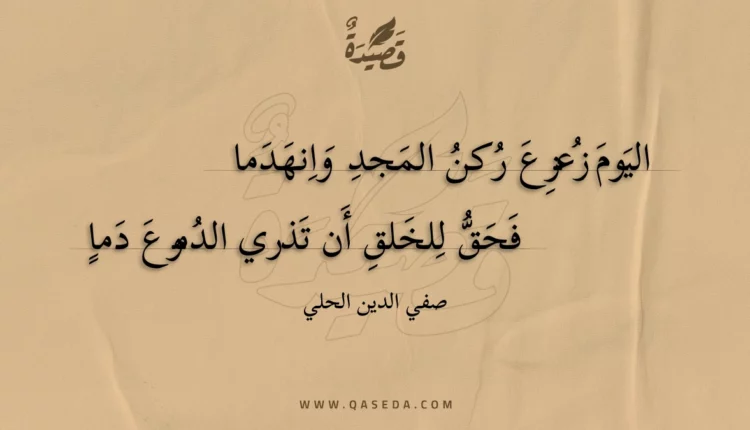 قَصِيدَةٌ
اليَومَ زُعزِعَ رُكنُ المَجدِ وَاِنهَدَما
فَحَقُّ لِلخَلقِ أَن تَذري الدُموعَ دَماٍ
صفي الدين الحلي
WWW.QASEDA.COM